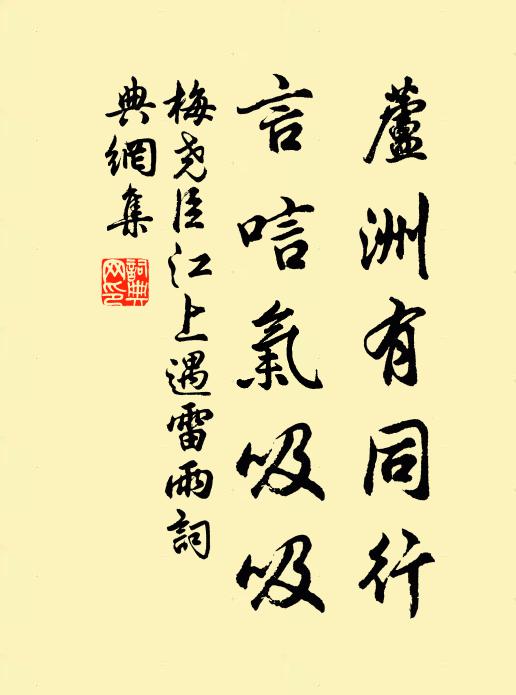 蘆洲有同行
言唁氣吸吸
梅尧臣江上遇雷雨詞
典網集
詞典网印